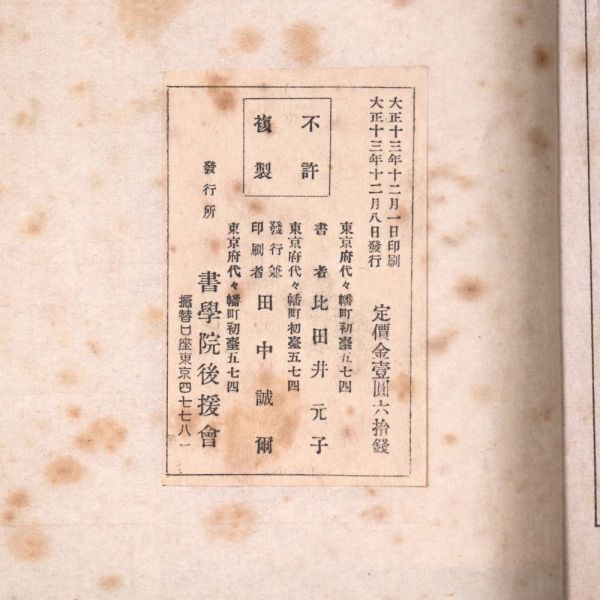 大正十三年十二月一日印刷
大正十三年十二月八日發行
定價金壹圓六拾錢
不許
複製
東京府代々幡町初臺五七四
書者 比田井元子
東京府代々幡町初臺五七四
發行兼
印刷者 田中誠爾
東京府代々幡町初臺五七四
發行所 書學院後援會
振替口座東京四七七八一